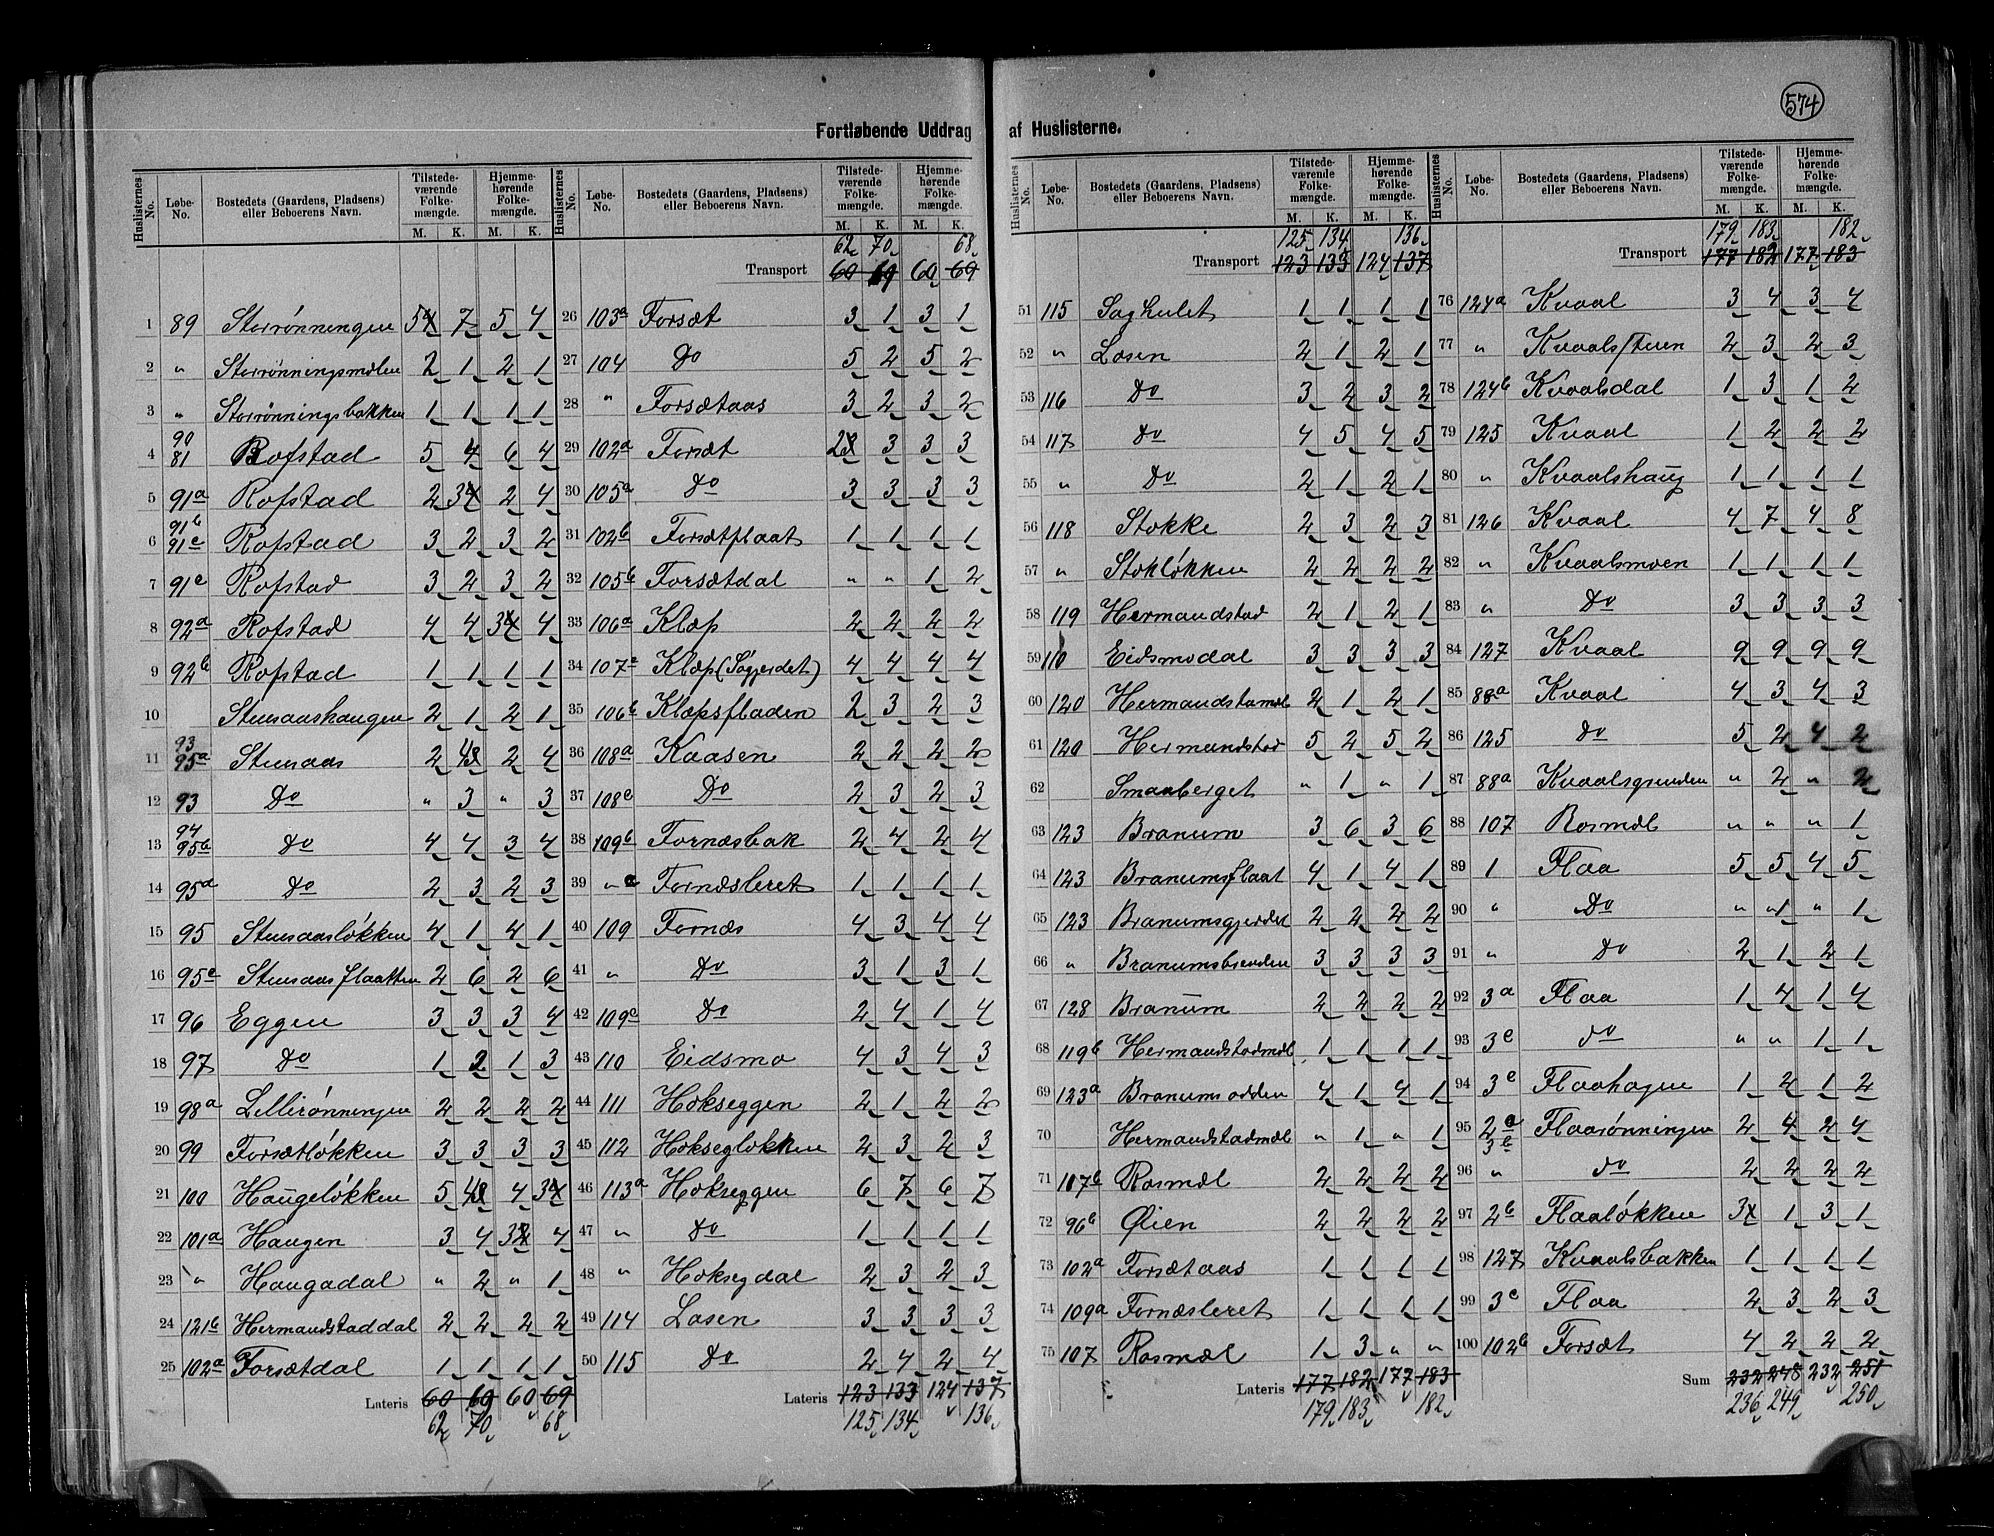 574
Fortløbende Uddrag af Huslisterne.
Huslisternes No. Løbe-No. Bostedets (Gaardens, Pladsens) eller Beboerens Navn. Tilstedeværende Folkemængde. Hjemmehørende Folkemængde.
M. K. M. K.
1 89 Storrønningen 5 7 5 4
2 " Storrønningsmølen 2 1 2 1
3 " Storrønningsbakken 1 1 1 1
4 90 81 Rofstad 5 4 6 4
5 91a Rofstad 2 3 2 4
6 91b 91c Rofstad 3 2 3 2
7 91c Rofstad 3 2 3 2
8 92a Rofstad 4 4 3 4
9 92b Rofstad 1 1 1 1
10 Stensaashaugen 2 1 2 1
11 93 95a Stensaas 2 4 2 4
12 93 Do " 3 " 3
13 94 95b Do 4 4 3 4
14 95a Do 2 3 2 3
15 95 Stensaasløkken 4 1 4 1
16 95c Stensaasflaatten 2 6 2 6
17 96 Eggen 3 3 3 4
18 97 Do 1 2 1 3
19 98a Lillerønningen 2 2 2 2
20 99 Forsætløkken 3 3 3 3
21 100 Haugeløkken 5 4 4 3
22 101a Haugen 3 4 3 4
23 " Haugadal " 2 " 1
24 121b Hermanstaddal 2 2 2 2
25 102a Forsætdal 1 1 1 1
Lateris 60 69 60 69
62 70 68
Huslisternes No. Løbe-No. Bostedets (Gaardens, Pladsens) eller Beboerens Navn. Tilstedeværende Folkemængde. Hjemmehørende Folkemængde.
M. K. M. K.
62 70 68
Transport 60 69 60 69
26 103a Forsæt 3 1 3 1
27 104 Do 5 2 5 2
28 " Forsætaas 3 2 3 2
29 102a Forsæt 2 3 3 3
30 105a Do 3 3 3 3
31 102b Forsætflaat 1 1 1 1
32 105b Forsætdal " " 1 2
33 106a Klæp 2 2 2 2
34 107a Klæp (Søgjerdet) 4 4 4 4
35 106b Klæpsfladen 2 3 2 3
36 108a Kaasen 2 2 2 2
37 108c Do 2 3 2 3
38 109b Fornæsbak 2 4 2 4
39 " c Fornæsleret 1 1 1 1
40 109 Fornæs 4 3 4 4
41 " Do 3 1 3 1
42 109c Do 2 4 1 4
43 110 Eidsmo 4 3 4 3
44 111 Hokseggen 2 1 2 2
45 112 Hoksegløkken 2 3 2 3
46 113a Hokseggen 6 7 6 7
47 " Do 1 1 1 1
48 " Hoksegdal 2 3 2 3
49 114 Losen 3 3 3 3
50 115 Do 2 4 2 4
Lateris 123 133 124 137
125 134 136
Huslisternes No. Løbe-No. Bostedets (Gaardens, Pladsens) eller Beboerens Navn. Tilstedeværende Folkemængde. Hjemmehørende Folkemængde.
M. K. M. K.
125 134 136
Transport 123 133 124 137
51 115 Saghulet 1 1 1 1
52 " Losen 2 1 2 1
53 116 Do 3 2 3 2
54 117 Do 4 5 4 5
55 " Do 2 1 2 1
56 118 Stokke 2 3 2 3
57 " Stokløkken 2 2 2 2
58 119 Hermandstad 2 1 2 1
59 110 Eidsmodal 3 3 3 3
60 120 Hermandstamæl 2 1 2 1
61 120 Hermandstad 5 2 5 2
62 Smaaberget " 1 " 1
63 123 Branum 3 6 3 6
64 123 Branumsflaat 4 1 4 1
65 123 Branumsgjerdet 2 2 2 2
66 " Branumsbrenden 3 3 3 3
67 128 Branum 2 2 2 2
68 119b Hermandstadmæl 1 1 1 1
69 123a Branumsodden 4 1 4 1
70 Hermandstadmæl " 1 " 1
71 107b Rosmæl 2 2 2 2
72 96b Øien 2 2 2 2
73 102a Forsætaas 1 1 1 1
74 109a Fornæsleret 1 1 1 1
75 107 Rosmæl 1 3 " "
Lateris 177 182 177 183
179 183 182
Huslisternes No. Løbe-No. Bostedets (Gaardens, Pladsens) eller Beboerens Navn. Tilstedeværende Folkemængde. Hjemmehørende Folkemængde.
M. K. M. K.
179 183 182
Transport 177 182 177 183
76 124a Kvaal 3 4 3 4
77 " Kvaalsteien 2 3 2 3
78 124b Kvaalsdal 1 3 1 2
79 125 Kvaal 1 2 2 2
80 " Kvaalshaug 1 1 1 1
81 126 Kvaal 4 7 4 8
82 " Kvaalsmoen 1 1 1 1
83 " Do 3 3 3 3
84 127 Kvaal 9 9 9 9
85 88a Kvaal 4 3 4 3
86 125 Do 5 2 4 2
87 88a Kvaalsgrinden " 2 " 2
88 107 Rosmæl " " " 1
89 1 Flaa 5 5 4 5
90 " Do " 1 " 1
91 " Do 2 1 2 1
92 3a Flaa 1 4 1 4
93 3c do " " 1 1
94 3c Flaahagen 1 2 1 2
95 2a 3b Flaarønningen 2 4 2 4
96 " do 2 2 2 2
97 2b Flaaløkken 3 1 3 1
98 127 Kvaalsbakken 1 1 1 1
99 3c Flaa 2 3 2 3
100 102b Forsæt 4 2 2 2
Sum 232 248 232 251
236 249 250